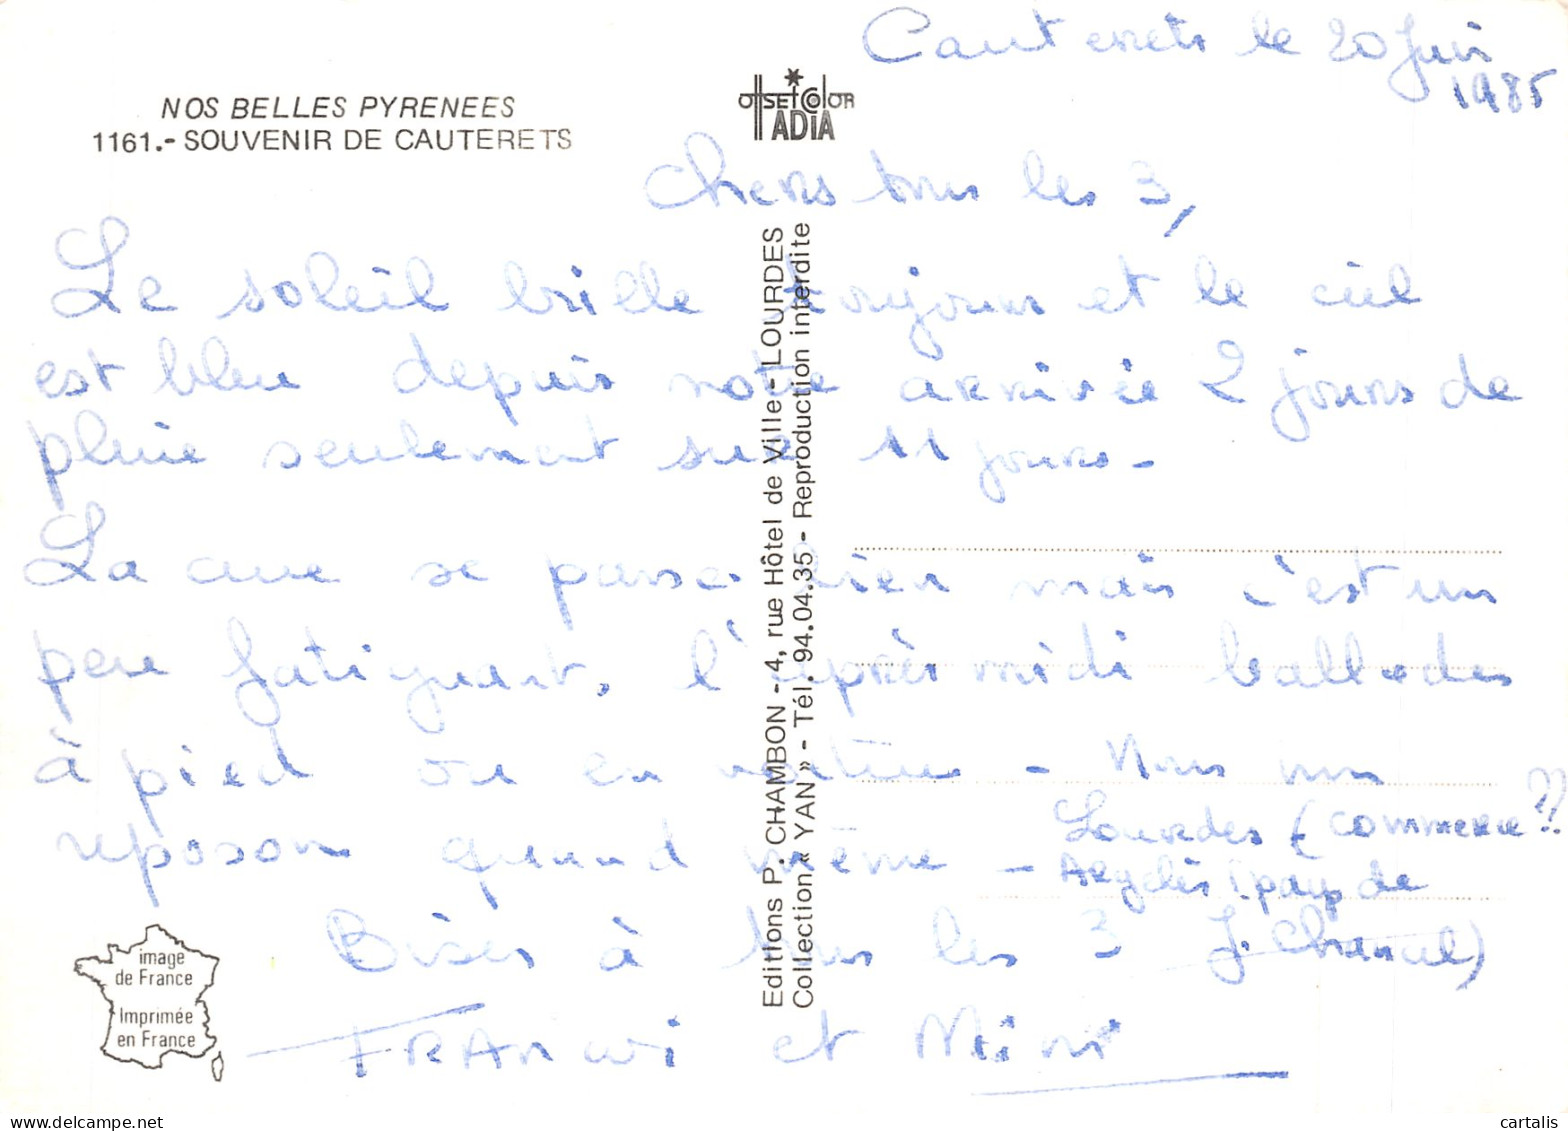 Cauterets le 20 Juin
1985
NOS BELLES PYRENEES
1161.- SOUVENIR DE CAUTERETS
OffSET COlOR
ADIA
Chers tous les 3,
Le soleil brille toujours et le ciel
est bleu depuis notre arrivée 2 jours de
pluie seulement sur 11 jours -
La cure se passe bien mais c'est un
peu fatiguant, l'après midi ballades
à pied ou en voiture - Nous nous
reposon quand même -
Lourdes (commerce ??
Argelès (pays de
J. Chancel)
Bises à tous les 3
et Mimi
Editions P. CHAMBON - 4, rue Hôtel de Ville - LOURDES
Collection « YAN » - Tél. 94.04.35 - Reproduction interdite
image
de France
Imprimée
en France
cartalis